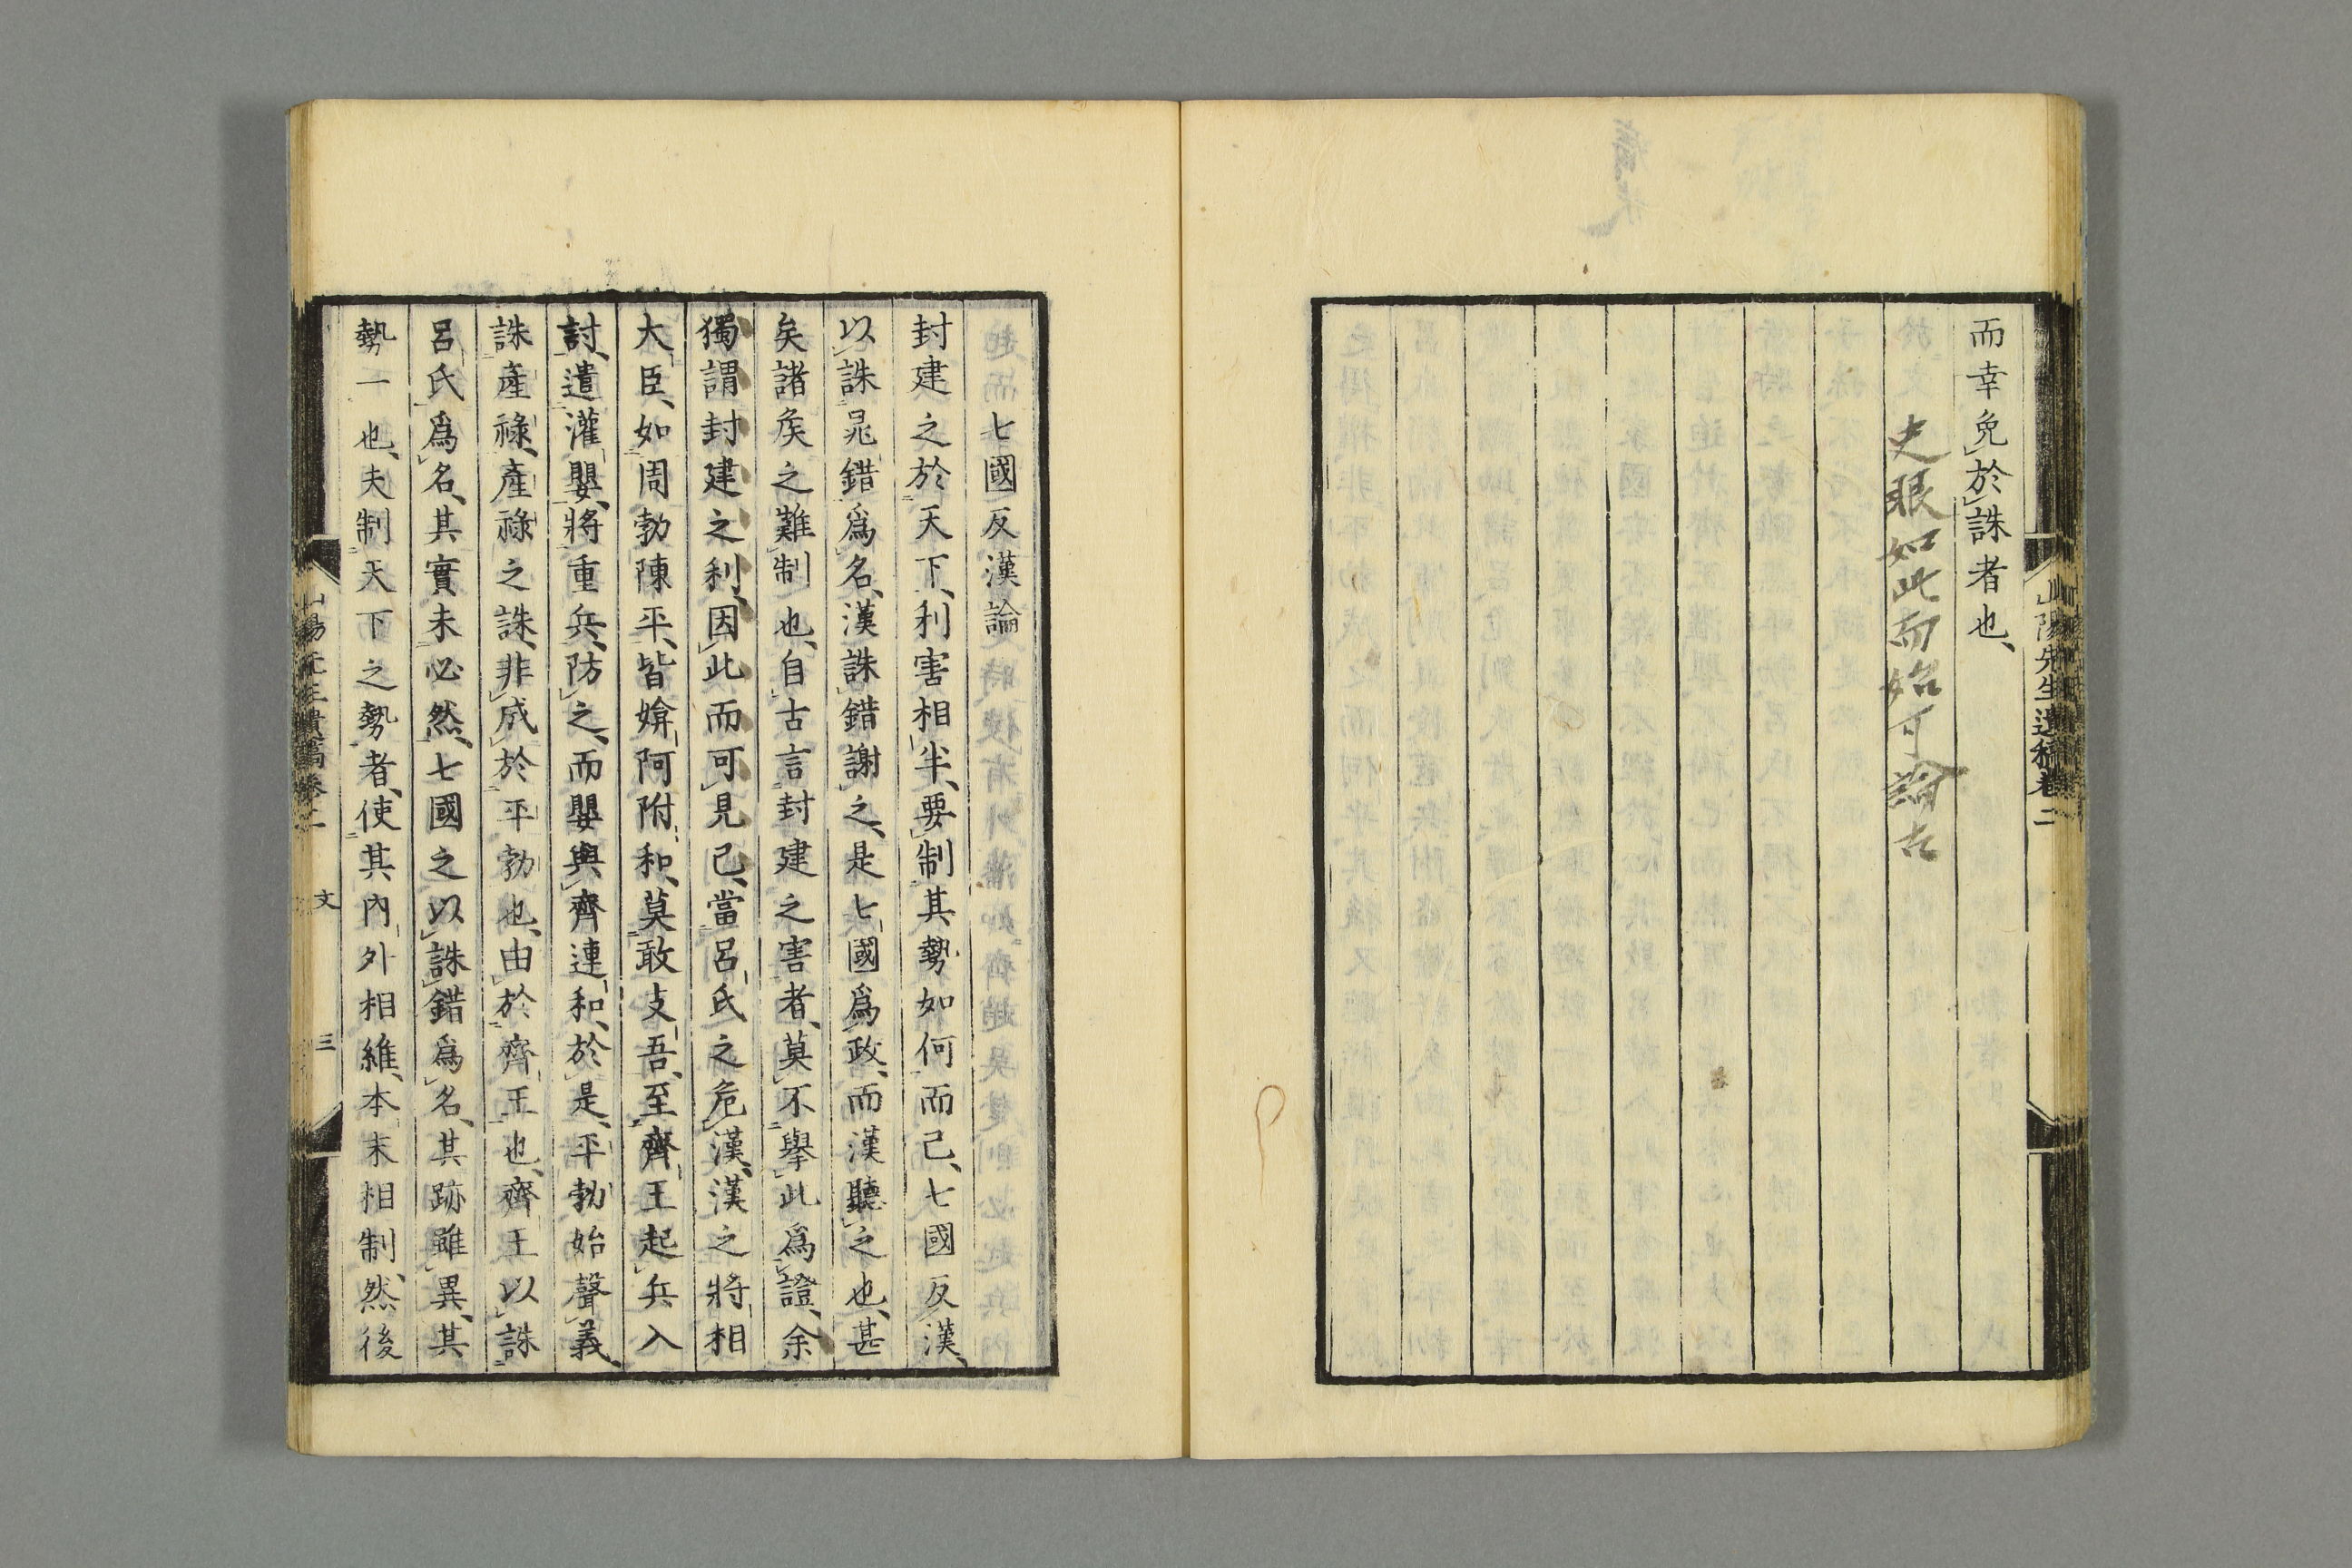 山陽先生遺稿卷二
而幸免於誅者也、
史眼如此而始可論古
七國反漢論
封建之於天下、利害相半、要制其勢如何而已、七國反漢、
以誅晁錯爲名、漢誅錯謝之、是七國爲政、而漢聽之也、甚
矣諸矦之難制也、自古言封建之害者、莫不擧此爲證、余
獨謂封建之利、因此而可見已、當呂氏之危漢、漢之將相
大臣、如周勃陳平、皆媕阿附和、莫敢支吾、至齊王起兵入
討、遣灌嬰、將重兵、防之、而嬰與齊連和、於是、平勃始聲義、
誅產祿、產祿之誅、非成於平勃也、由於齊王也、齊王以誅
呂氏爲名、其實未必然、七國之以誅錯爲名、其跡雖異、其
勢一也、夫制天下之勢者、使其內外相維、本末相制、然後
山陽先生遺稿卷二 文 三